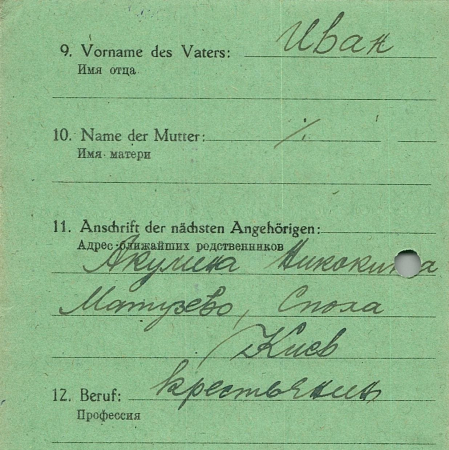 9. Vorname des Vaters: Иван
Имя отца
10. Name der Mutter: ·/·
Имя матери
11. Anschrift der nächsten Angehörigen:
Адрес ближайших родственников
Акулина
Матузево, Спола
Киев
12. Beruf: крестьянин
Профессия